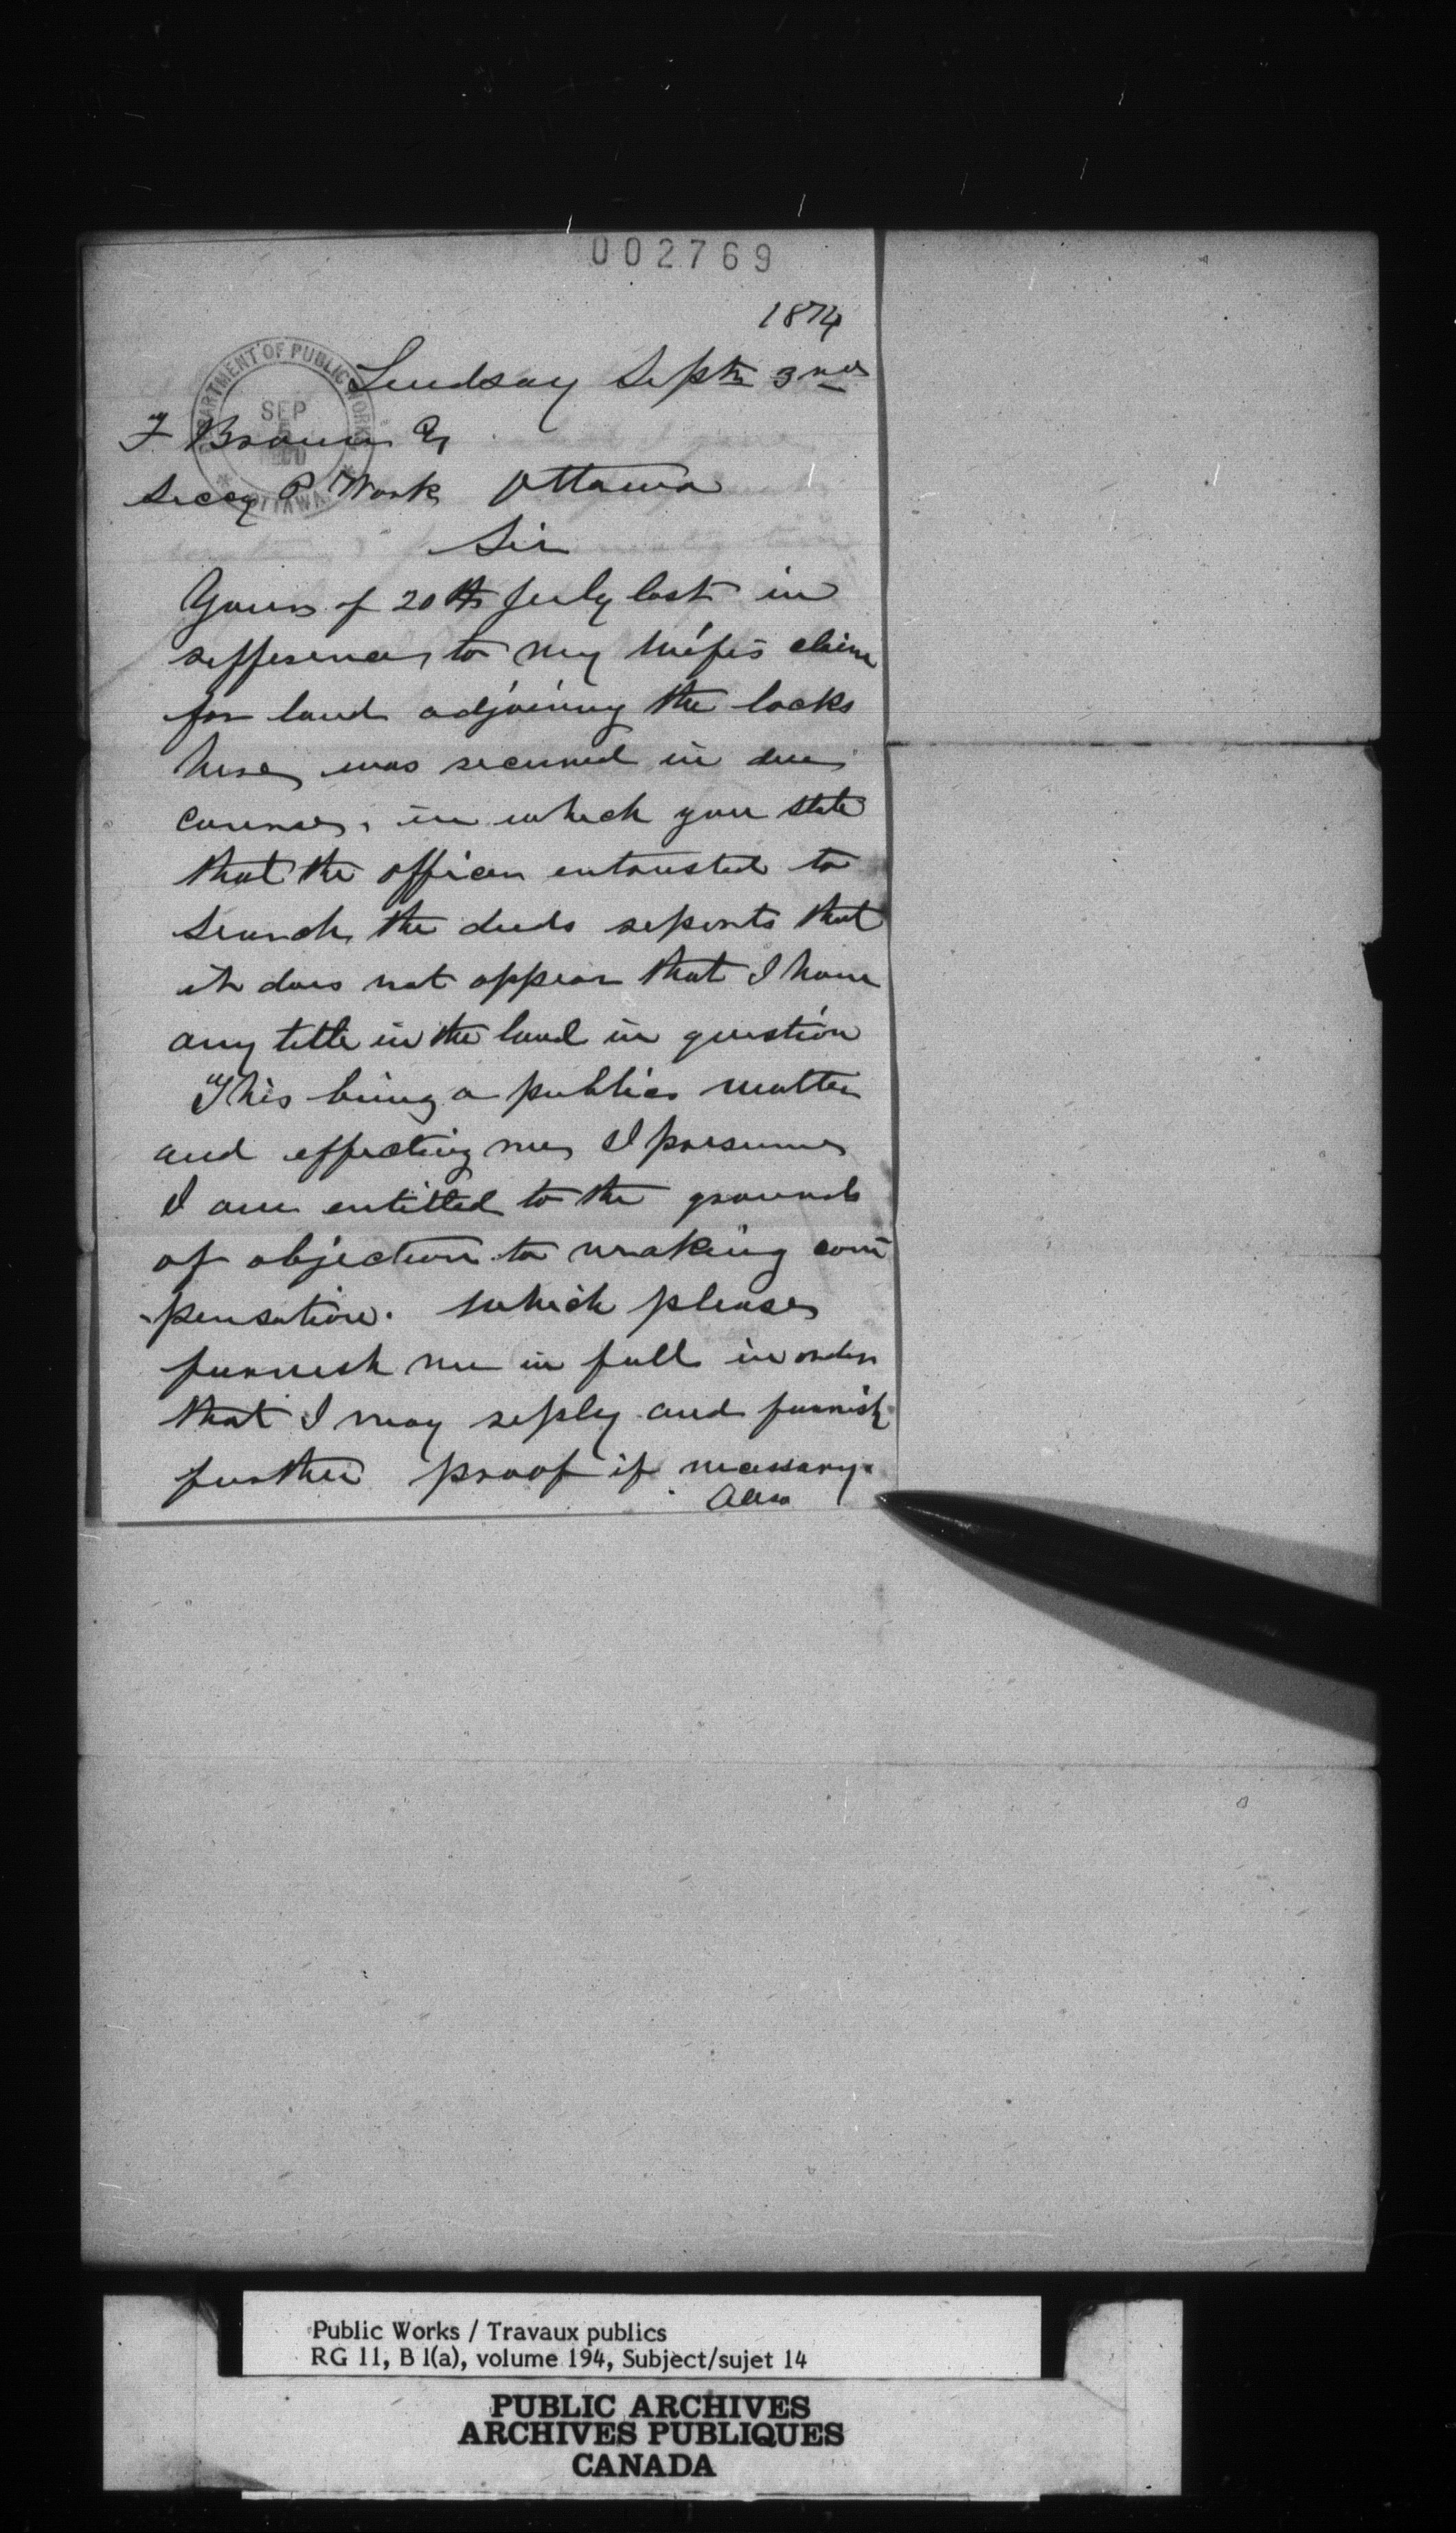 002769
1874
Lindsay Septr 3rd
DEPARTMENT OF PUBLIC WORKS
SEP
5
RECD
* OTTAWA *
F Braun Esq
Secy P Work Ottawa
Sir
Yours of 20th July last in
refference to my wife's claim
for land adjoining the locks
here was received in due
course, in which you state
that the officer entrusted to
search the deeds reports that
it does not appear that I have
any title in the land in question
This being a public matter
and effecting me, I presume
I am entitled to the grounds
of objection to making com
-pensation. which please
furnish me in full in order
that I may reply and furnish
further proof if necessary.
Also
Public Works / Travaux publics
RG 11, B 1(a), volume 194, Subject/sujet 14
PUBLIC ARCHIVES
ARCHIVES PUBLIQUES
CANADA